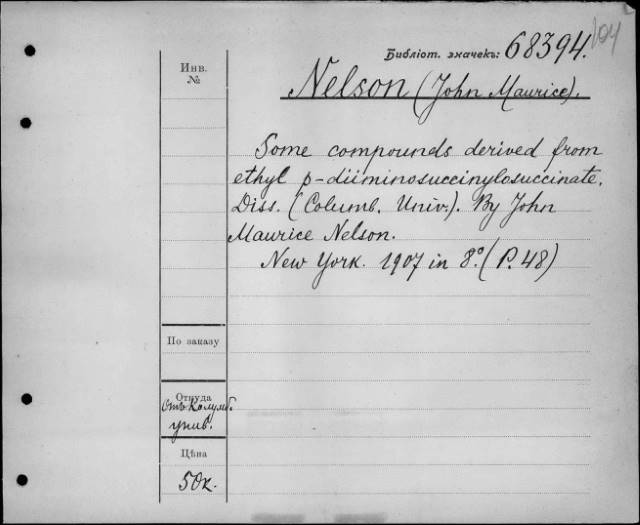 104
Библіот. значекъ: 68394.
Инв.
№
Nelson (John Maurice).
Some compounds derived from
ethyl p-diiminosuccinylosuccinate,
Diss. (Columb. Univ.). By John
Maurice Nelson.
New York. 1907 in 8º (P. 48)
По заказу
Откуда
Отъ Колумб.
унив.
Цѣна
50к.